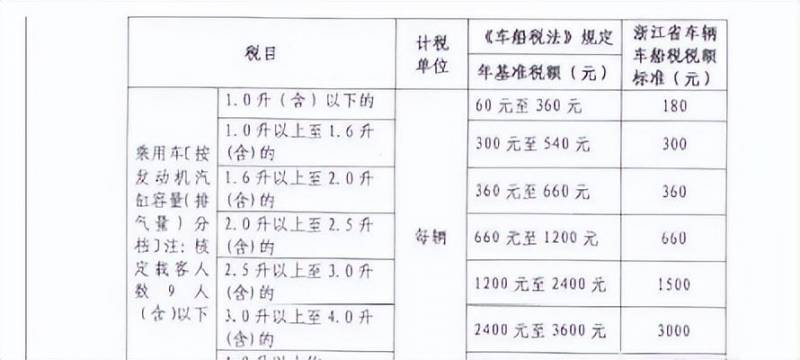 税目
计税
单位
《车船税法》规定
年基准税额（元）
浙江省车辆
车船税税额
标准（元）
乘用车[按
发动机汽
缸容量(排
气量）分
档]注：核
定载客人
数 9 人
(含)以下
1.0升（含）以下的
60 元至 360 元
180
1.0升以上至 1.6升
(含)的
300 元至 540 元
300
1.6升以上至 2.0升
(含)的
360 元至 660 元
360
2.0升以上至 2.5升
(含)的
每辆
660 元至 1200 元
660
2.5升以上至 3.0升
(含)的
1200 元至 2400 元
1500
3.0升以上至 4.0升
(含)的
2400 元至 3600 元
3000